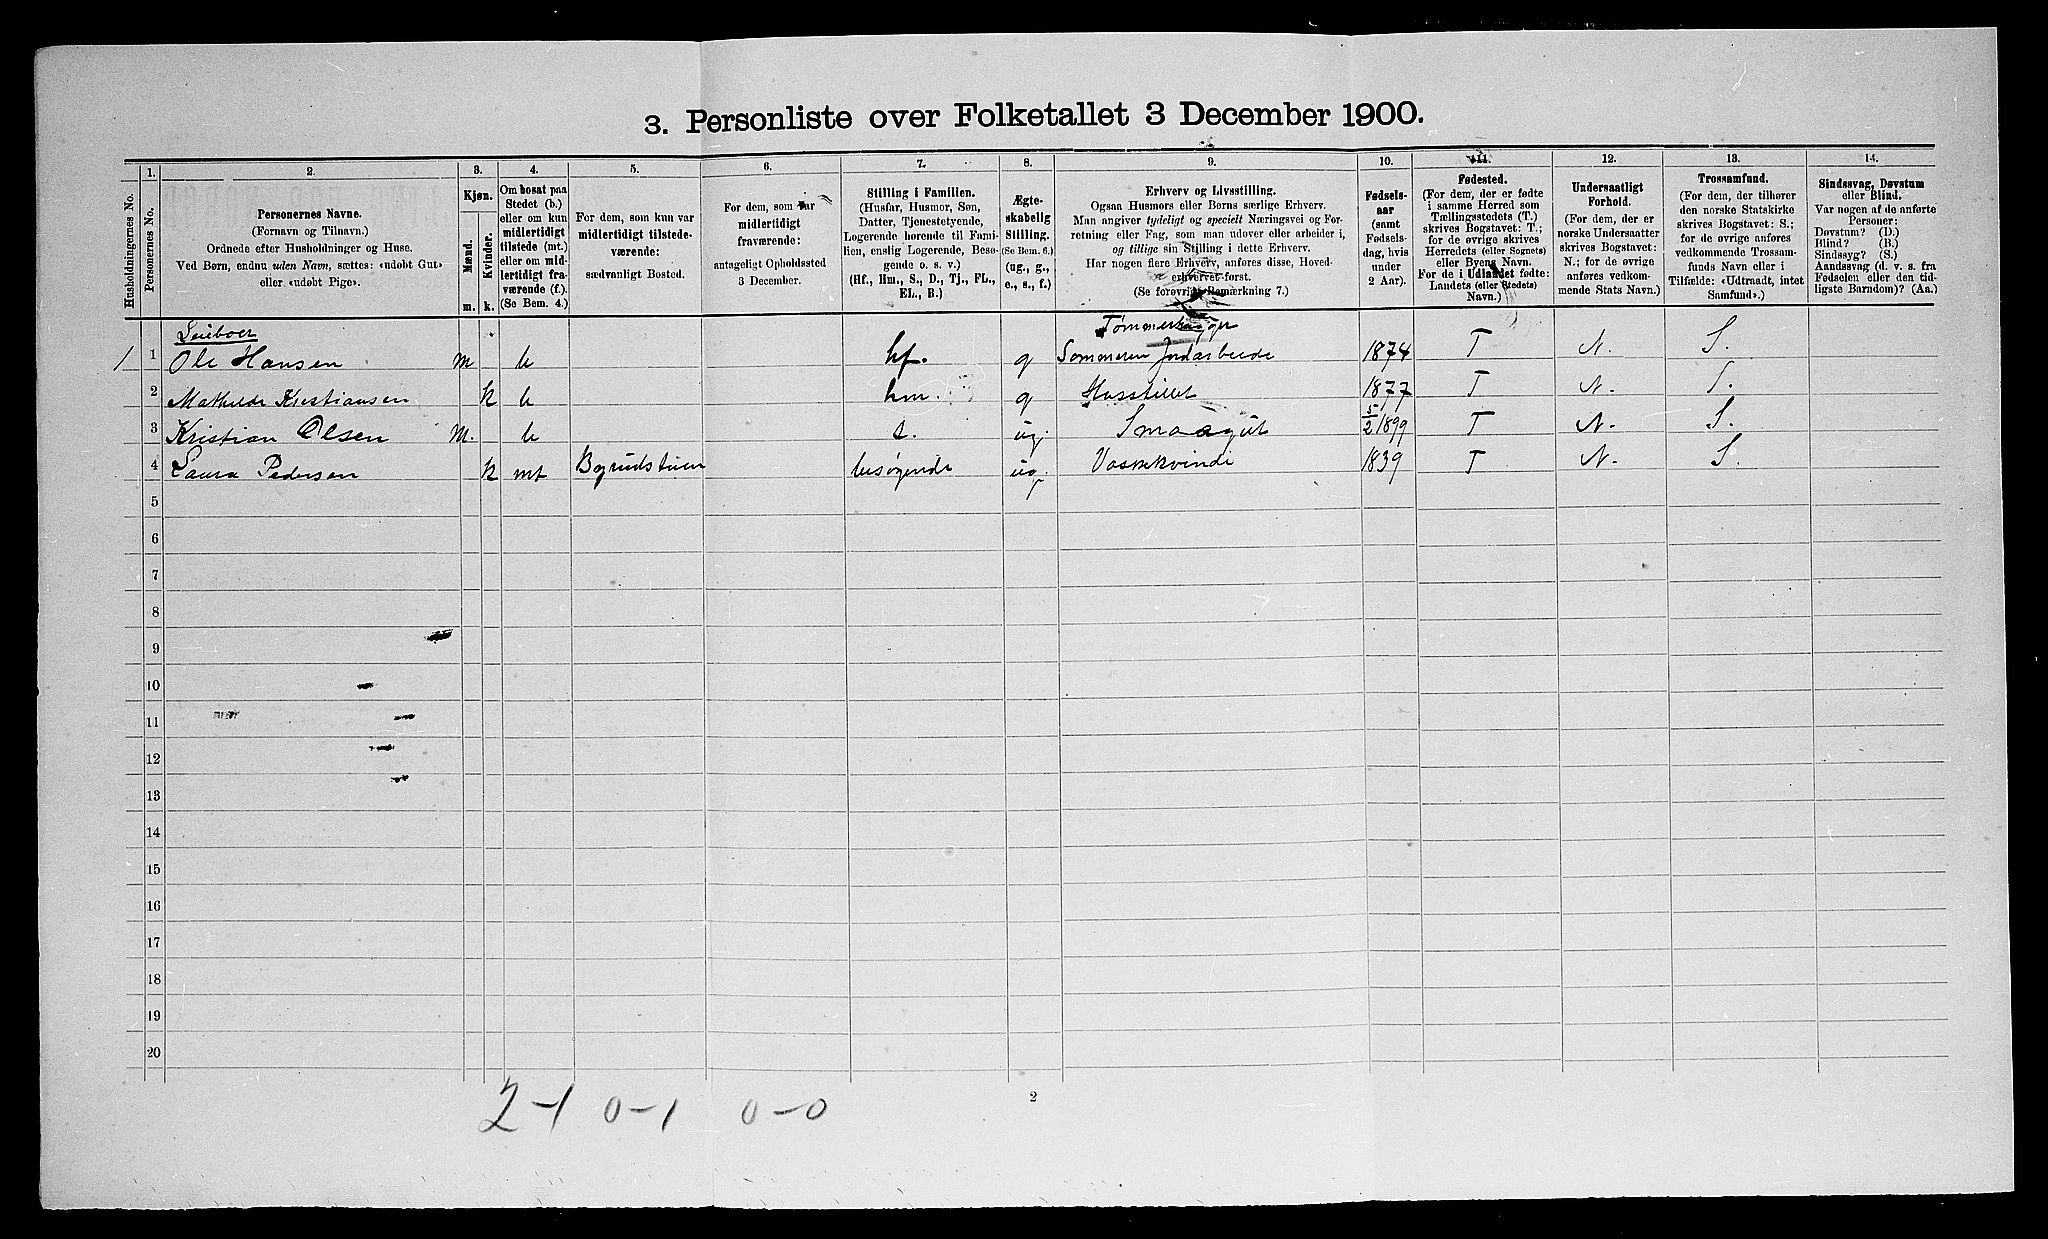 3. Personliste over Folketallet 3 December 1900.
Husholdningernes No.
1.
Personernes No.
2.
Personernes Navne.
(Fornavn og Tilnavn.)
Ordnede efter Husholdninger og Huse.
Ved Børn, endnu uden Navn, sættes: «udøbt Gut»
eller «udøbt Pige».
3.
Kjøn.
Mænd.
Kvinder.
m. k.
4.
Om bosat paa
Stedet (b.)
eller om kun
midlertidigt
tilstede (mt.)
eller om mid-
lertidigt fra-
værende (f.).
(Se Bem. 4.)
5.
For dem, som kun var
midlertidigt tilstede-
værende:
sædvanligt Bosted.
6.
For dem, som var
midlertidigt
fraværende:
antageligt Opholdssted
3 December.
7.
Stilling i Familien.
(Husfar, Husmor, Søn,
Datter, Tjenestetyende,
Logerende hørende til Fami-
lien, enslig Logerende, Besø-
gende o. s. v.)
(Hf., Hm., S., D., Tj., FL.,
EL., B.)
8.
Ægte-
skabelig
Stilling.
(Se Bem. 6.)
(ug., g.,
e., s., f.)
9.
Erhverv og Livsstilling.
Ogsaa Husmors eller Børns særlige Erhverv.
Man angiver tydeligt og specielt Næringsvei og For-
retning eller Fag, som man udøver eller arbeider i,
og tillige sin Stilling i dette Erhverv.
Har nogen flere Erhverv, anføres disse, Hoved-
erhvervet først.
(Se forøvrigt Bemærkning 7.)
10.
Fødsels-
aar
(samt
Fødsels-
dag, hvis
under
2 Aar).
11.
Fødested.
(For dem, der er fødte
i samme Herred som
Tællingsstedets (T.)
skrives Bogstavet: T.;
for de øvrige skrives
Herredets (eller Sognets)
eller Byens Navn.
For de i Udlandet fødte:
Landets (eller Stedets)
Navn.)
12.
Undersaatligt
Forhold.
(For dem, der er
norske Undersaatter
skrives Bogstavet:
N.; for de øvrige
anføres vedkom-
mende Stats Navn.)
13.
Trossamfund.
(For dem, der tilhører
den norske Statskirke
skrives Bogstavet: S.;
for de øvrige anføres
vedkommende Trossam-
funds Navn eller i
Tilfælde: «Udtraadt, intet
Samfund».)
14.
Sindssvag, Døvstum
eller Blind.
Var nogen af de anførte
Personer:
Døvstum? (D.)
Blind? (B.)
Sindssyg? (S.)
Aandssvag (d. v. s. fra
Fødselen eller den tid-
ligste Barndom)? (Aa.)
Leieboer
Tømmerhugger
1 1 Ole Hansen m b hf. g Sommeren Jordarbeide 1874 T N. S.
2 Mathilde Kristiansen k b hm. g Husstellet 1877 T N. S.
3 Kristian Olsen m. b s. ug. Smaagut 5/2 1899 T N. S.
4 Laura Pedersen k mt Bjrudstuen besøgende ug. Vaskekvinde 1839 T N. S.
5
6
7
8
9
10
11
12
13
14
15
16
17
18
19
20
2-1 0-1 0-0
2